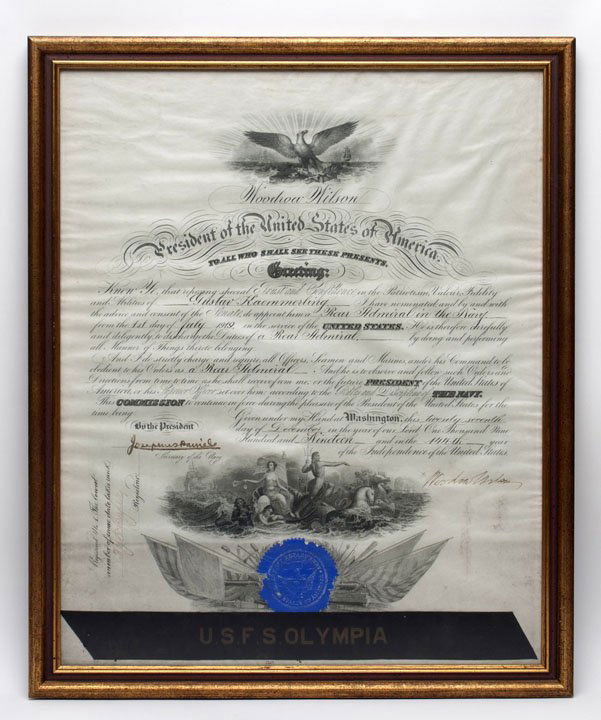 Woodrow Wilson
President of the United States of America.
TO ALL WHO SHALL SEE THESE PRESENTS,
Greeting:
Know Ye, that reposing special Trust and Confidence in the Patriotism, Valour, Fidelity
and Abilities of Gustav Kaemmerling I have nominated and by and with
the advice and consent of the Senate do appoint him a Rear Admiral in the Navy
from the 1st day of July in the service of the UNITED STATES. He is therefore carefully
and diligently to discharge the Duties of a Rear Admiral by doing and performing
all Manner of Things thereto belonging.
And I do strictly charge and require all Officers, Seamen and Marines under his Command to be
obedient to his Orders as a Rear Admiral And he is to observe and follow such Orders and
Directions from time to time as he shall receive from me, or the future PRESIDENT of the United States of
America, or his Superior Officer set over him, according to the Rules and Discipline of THE NAVY.
This COMMISSION to continue in force during the pleasure of the President of the United States for the
time being.
Given under my Hand at Washington, this twenty seventh
day of December in the year of our Lord One Thousand Nine
Hundred and Nineteen and in the 144th year
of the Independence of the United States.
By the President
Josephus Daniels
Secretary of the Navy
Woodrow Wilson
Registrar.
U.S.F.S. OLYMPIA